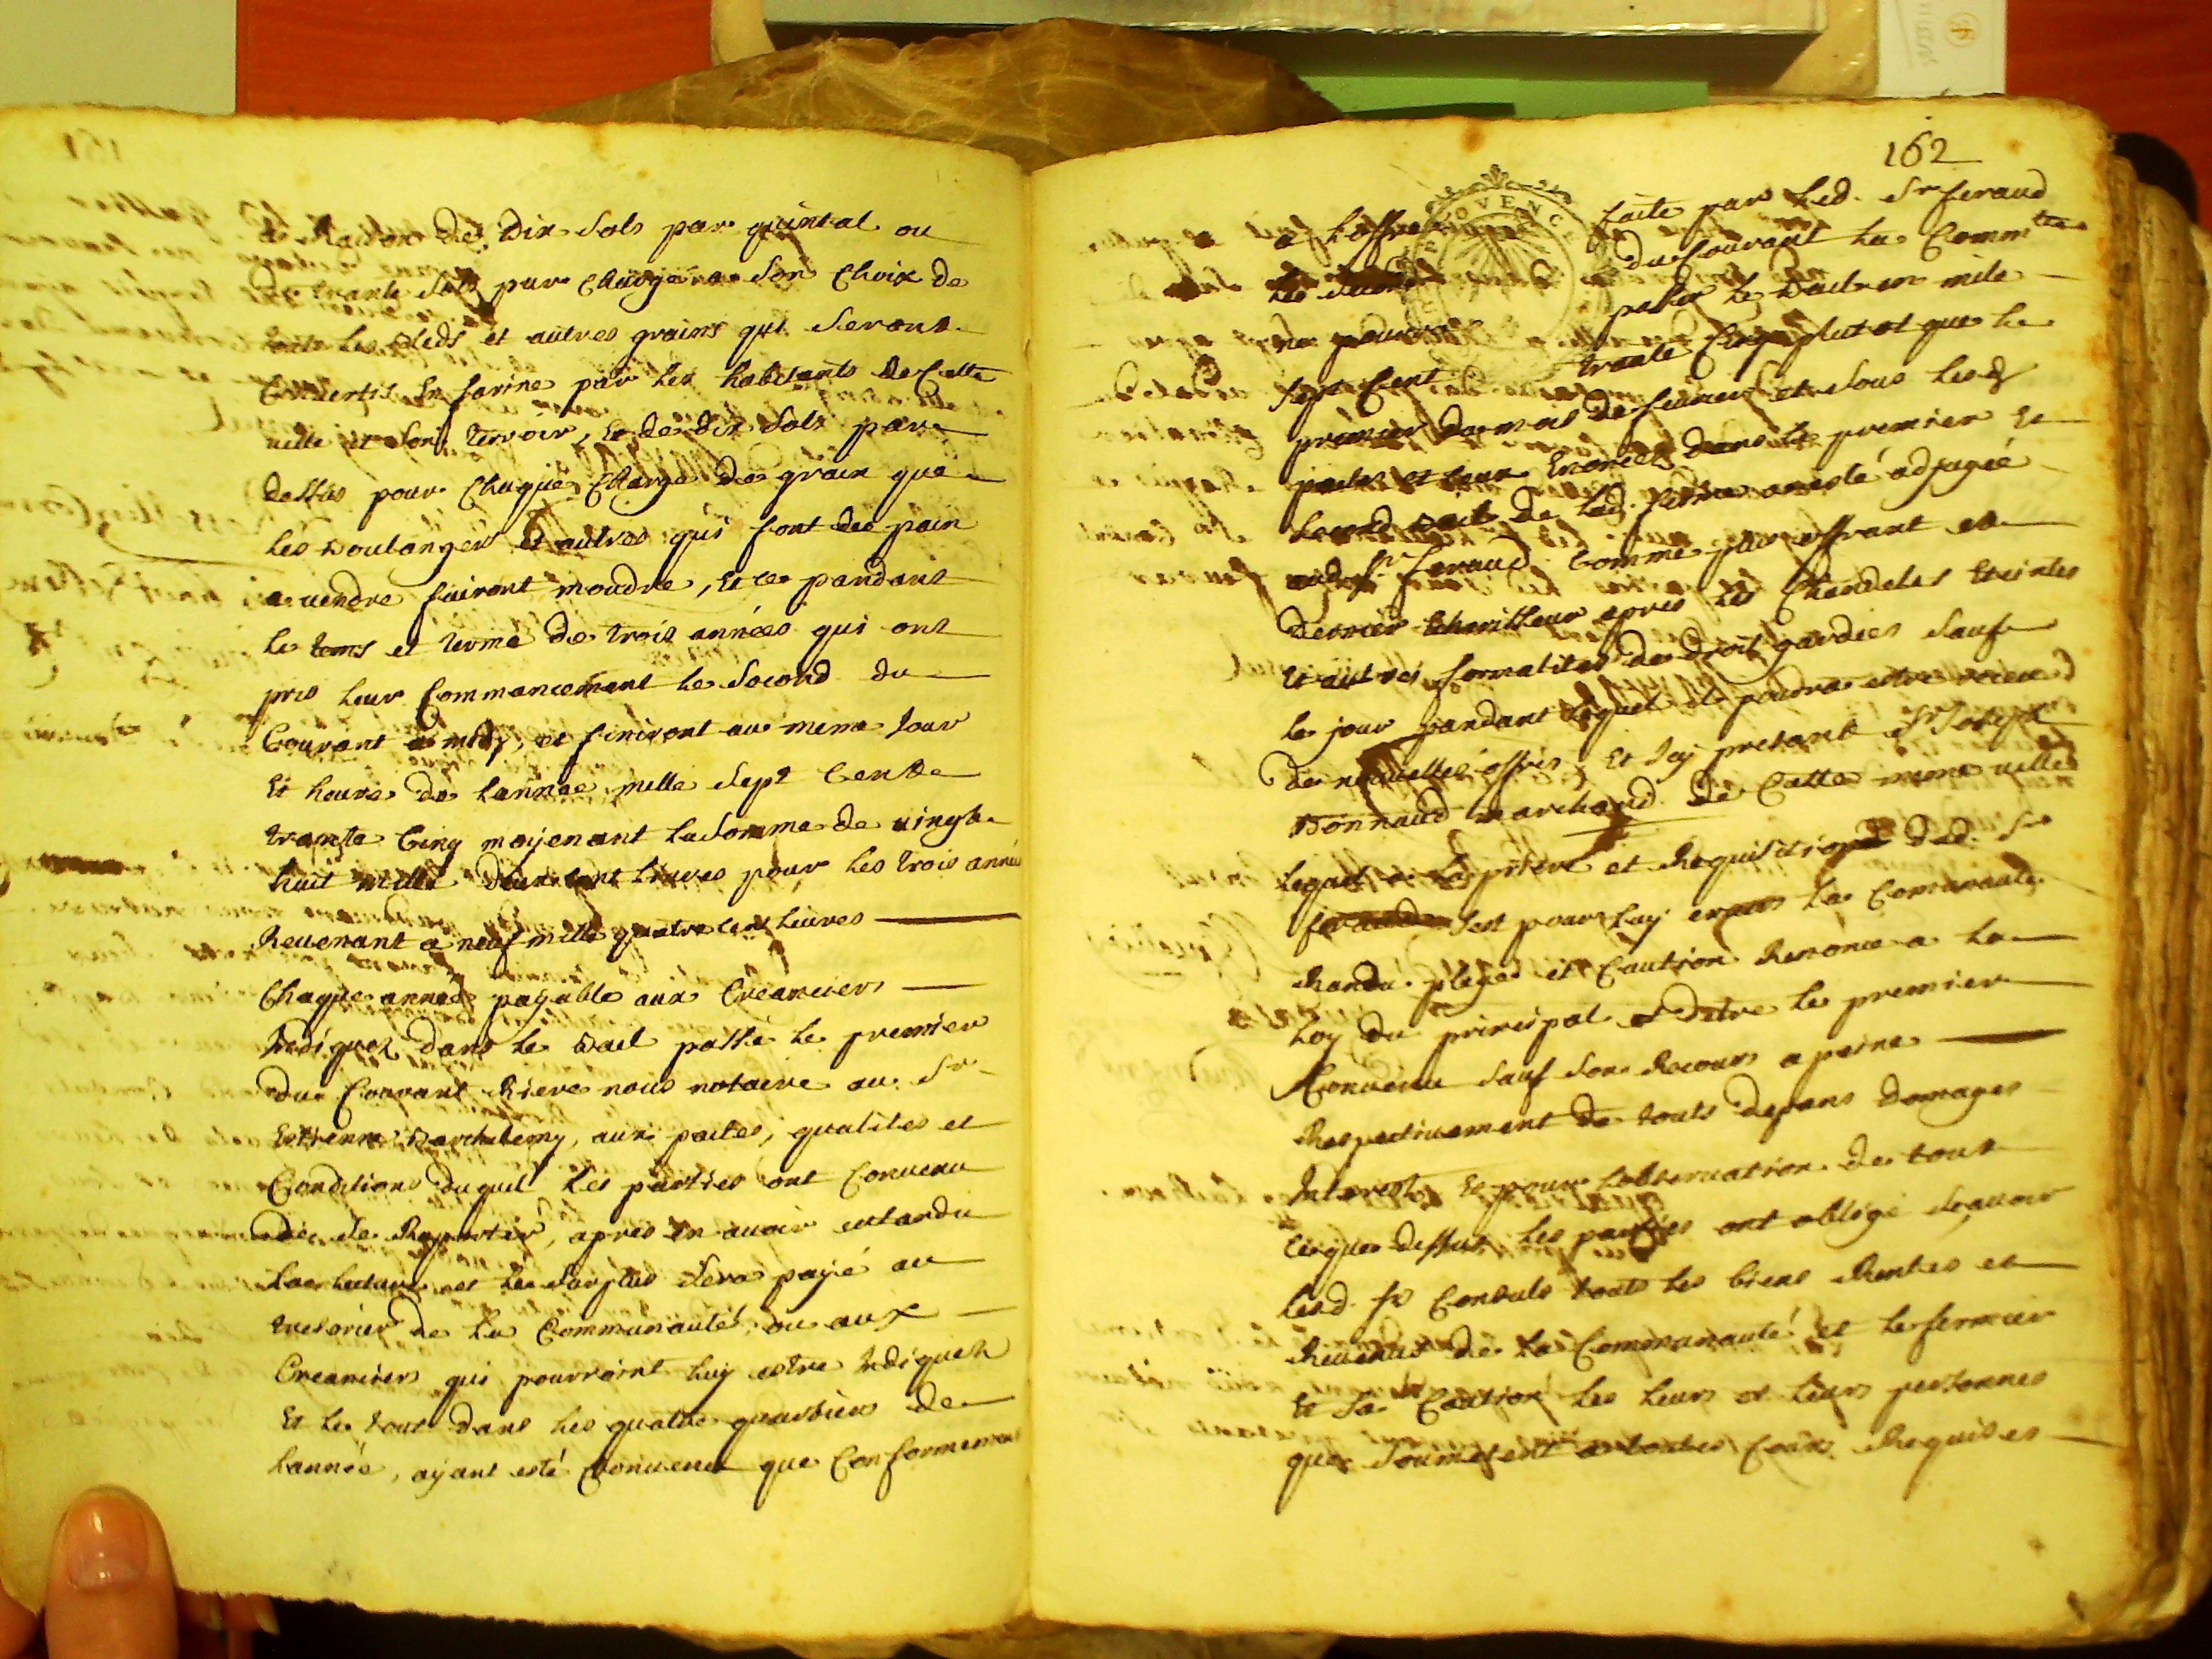 a Raison de dix sols par quintal ou
de trante sols par charge a son choix de
touts les bleds et autres grains qui seront
convertis En farine par les habitants de Cette
ville et son terroir, Et de dix sols par
dessus pour chaque charge de grain que
les Boulangers et autres qui font de pain
a vendre fairont moudre, Et ce pandant
le tems et terme de trois années qui ont
pris leur Commancement le second du
Courant a midy, et finiront au meme Jour
Et heure de l'année mille sept Cent
trante Cinq moyenant la somme de vingt
huit mille deux cent livres pour les trois années
Revenant a neuf mille quatre cent livres
Chaque année payable aux Creanciers
Indiquez dans le Bail passé le premier
du Courant Riere nous notaire au Sr
Estienne Barthelemy, aux pactes, qualités et
Conditions duquel les parties ont Convenu
de se Raporter, apres En avoir entandu
la lecture et le surplus sera payé au
tresorier de la Communauté, ou aux
Creanciers qui pourroint luy estre Indiquez
Et le tout dans les quatre quartiers de
l'année, ayant esté Convenu que Conformement
162
a l'offre faite par led. Sr feraud
le second du Courant la Commté
ne pourra passer le Bail en mile
sept Cent trante Cinq plutot que le
premier du mois de fevrier et sous lesd
pactes et leur Enoncés dans le premier Et
second Bail de lad. ferme a resté adjugée
aud Sr feraud Comme plus offrant et
dernier Encherisseur apres les Chandeles Eteintes
Et autres formalités de droit gardées sauf
le jour pandant lequel il poudra estre receu
de nouvelles offres, Et Icy presant Sr Joseph
Bonnaud marchand de Cette meme ville
lequel a la priere et Requisition dud. Sr
feraud s'est pour luy envers la Comunauté
Randu plege et Caution Renonce a la
loy du principal et d'etre le premier
Convenu sauf son Recours a peine
Respectivement de touts depans domages
Interest, Et pour l'observation de tout
ce que dessus les parties ont obligé sçavoir
lesd. Srs Consuls touts les biens Rentes et
Revenus de la Communauté et le fermier
Et sa Caution les leurs et leurs personnes
que soumetent a toutes Cours Requises